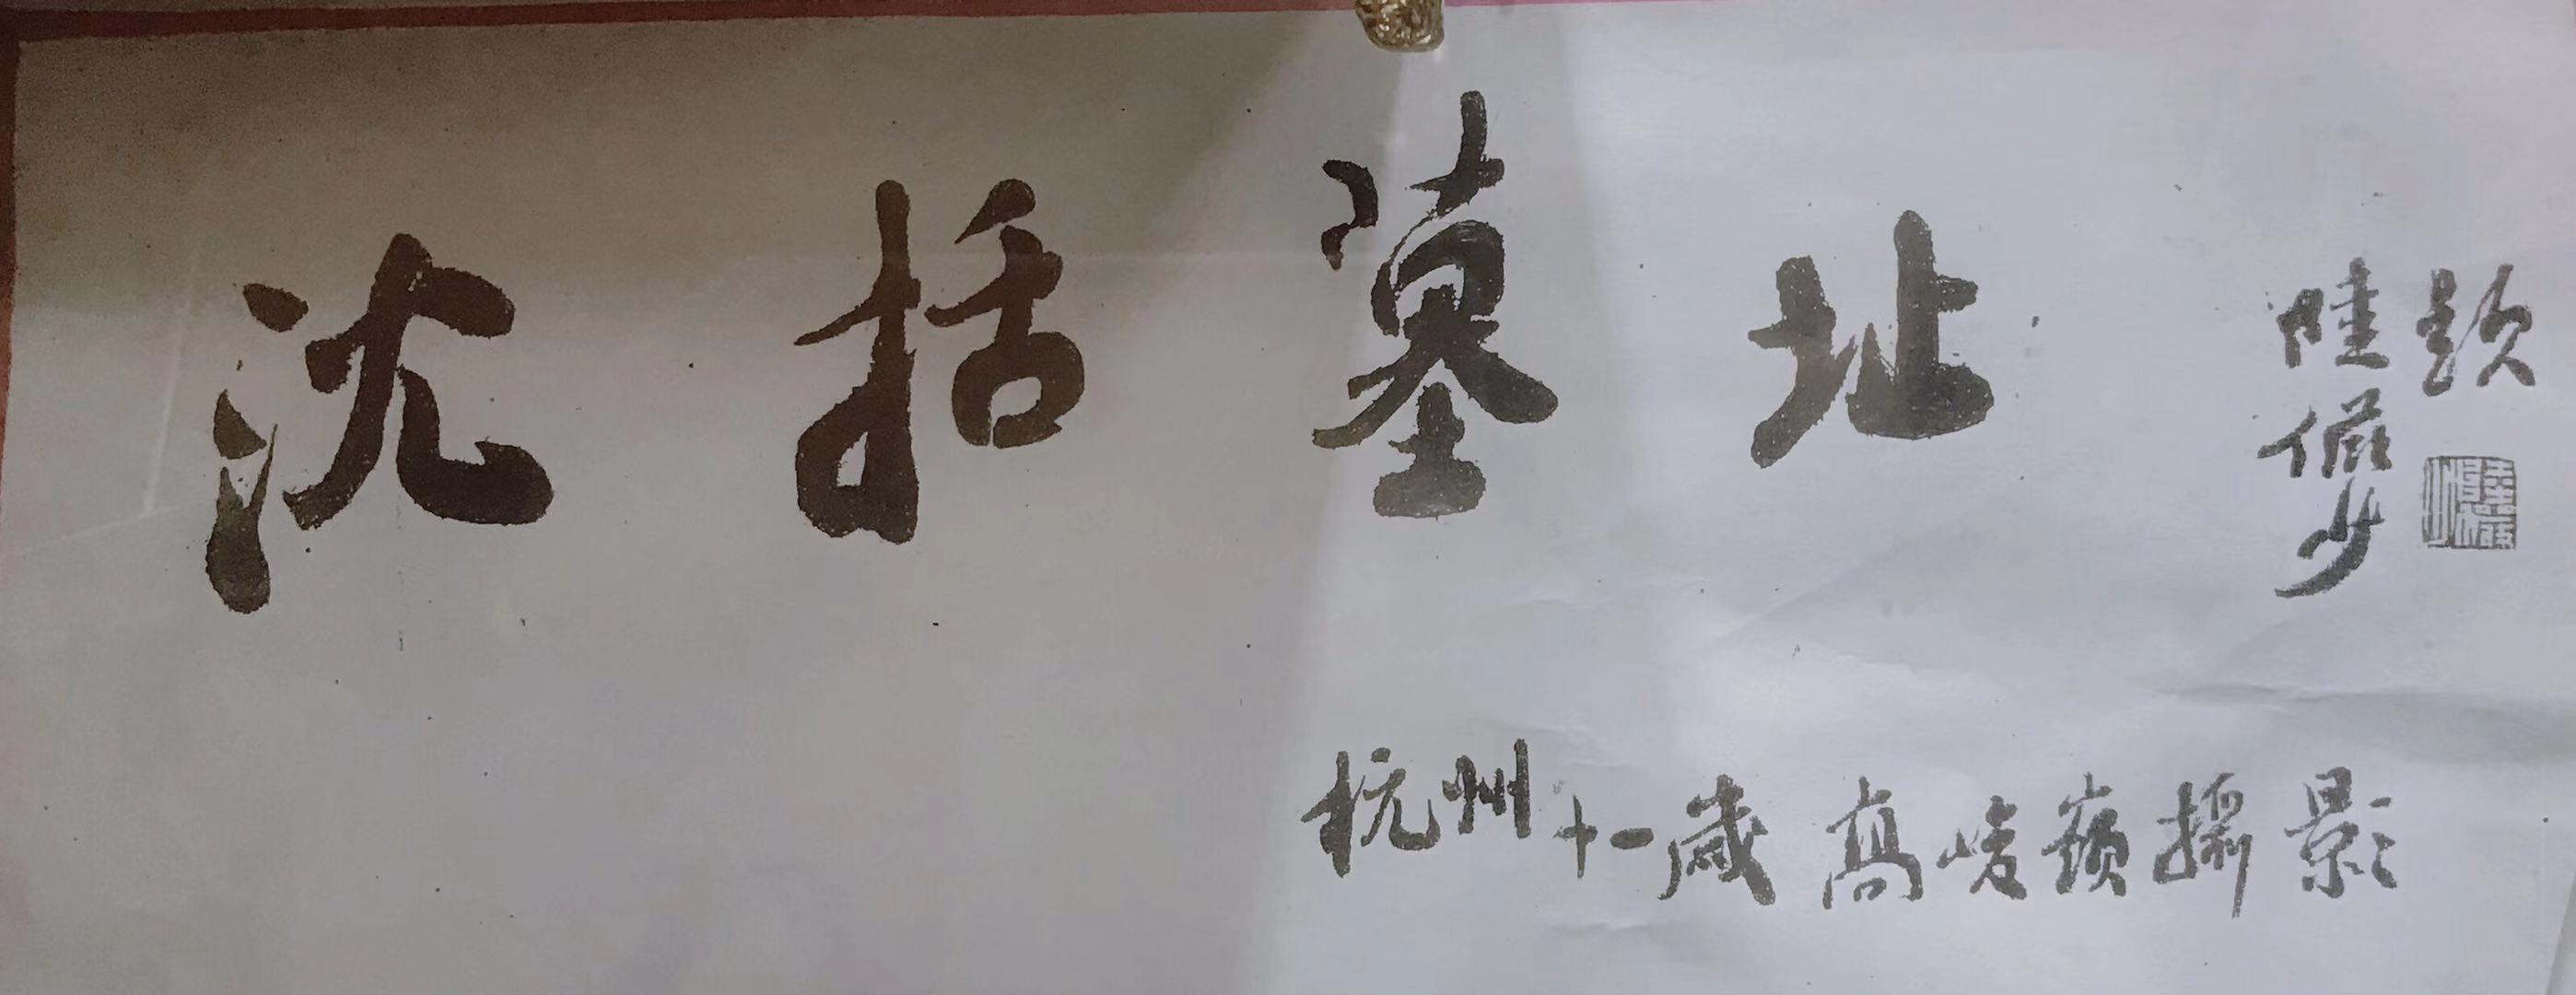 沈括墓址
陸儼少
題
陸儼少
杭州十一歲高峻嶺攝影